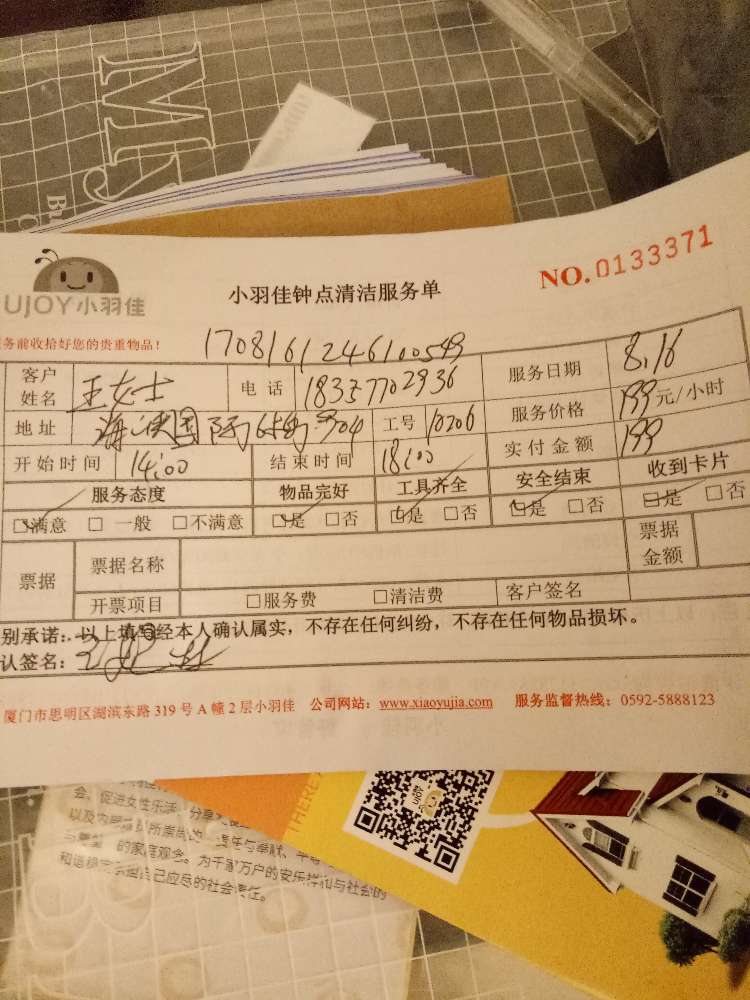 My
UJOY小羽佳
小羽佳钟点清洁服务单
NO.0133371
务前收拾好您的贵重物品!
1708161246100549
客户姓名 王女士 电话 18357702936 服务日期 8.16
地址 国际 904 工号 10206 服务价格 199元/小时
开始时间 14:00 结束时间 18:00 实付金额 199
服务态度 物品完好 工具齐全 安全结束 收到卡片
☑满意 □一般 □不满意 ☑是 □否 ☑是 □否 ☑是 □否 ☑是 □否
票据 票据名称 票据金额
开票项目 □服务费 □清洁费 客户签名
别承诺:以上填写经本人确认属实,不存在任何纠纷,不存在任何物品损坏。
认签名:
厦门市思明区湖滨东路319号A幢2层小羽佳 公司网站:www.xiaoyujia.com 服务监督热线:0592-5888123
THERE
会、促进女性乐活、分享
以及内
的家庭观念。为千家万户的安乐祥和与社会的
和谐稳定承担自己应尽的社会责任。